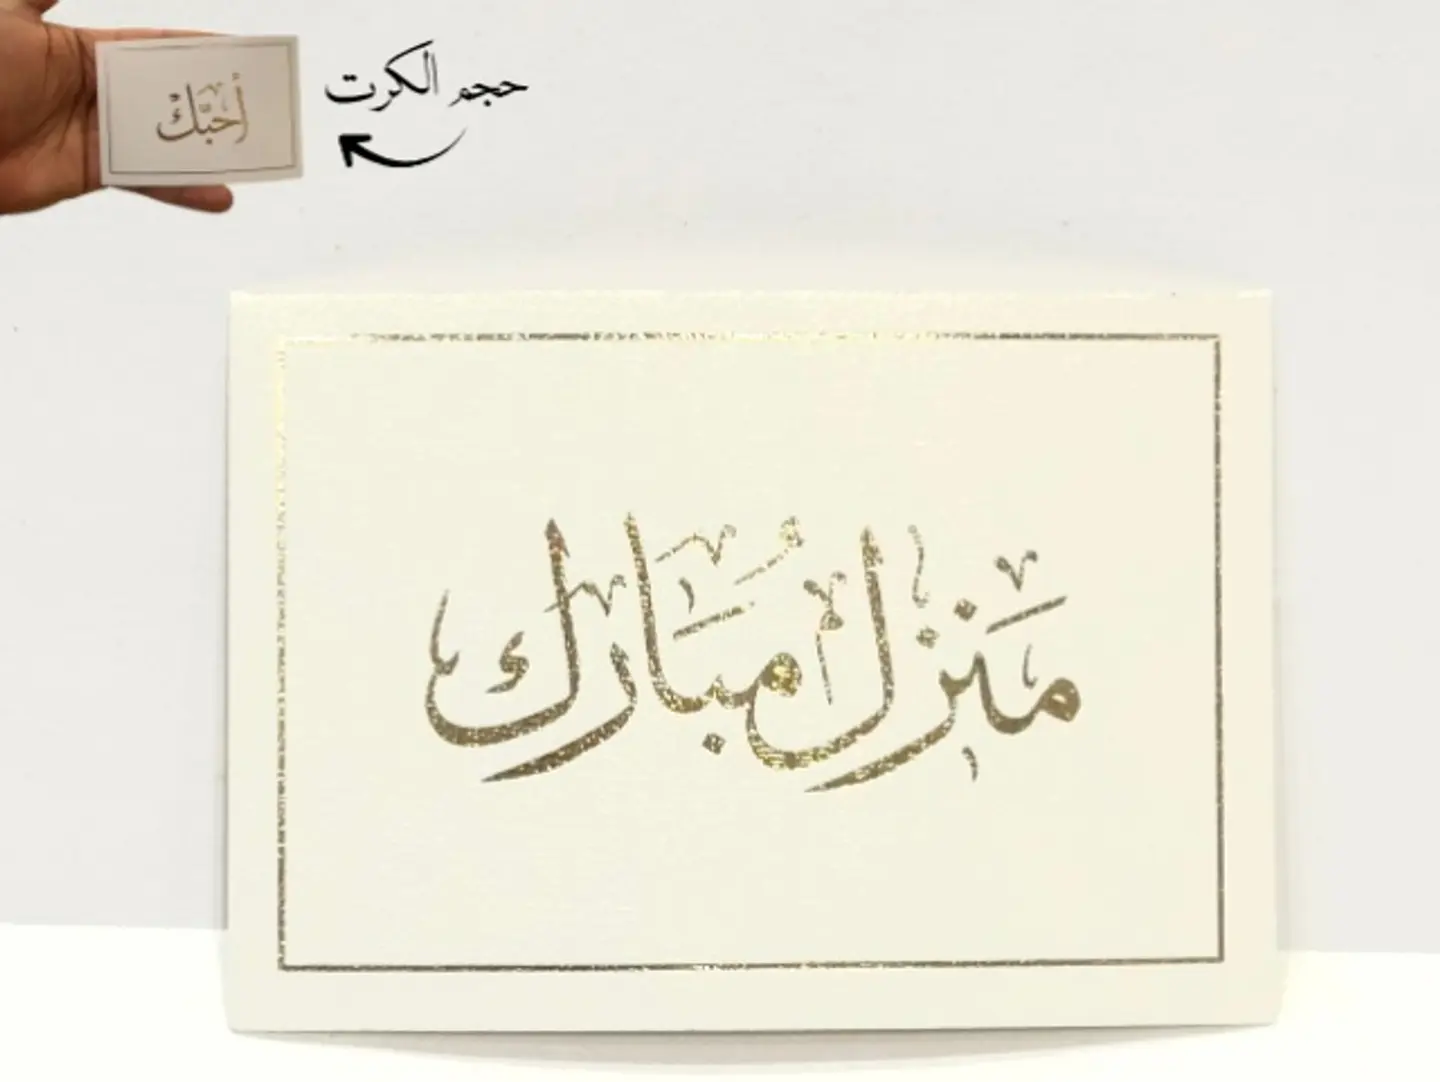 أحبّك
حجم الكرت
مَنزل مُبَارك